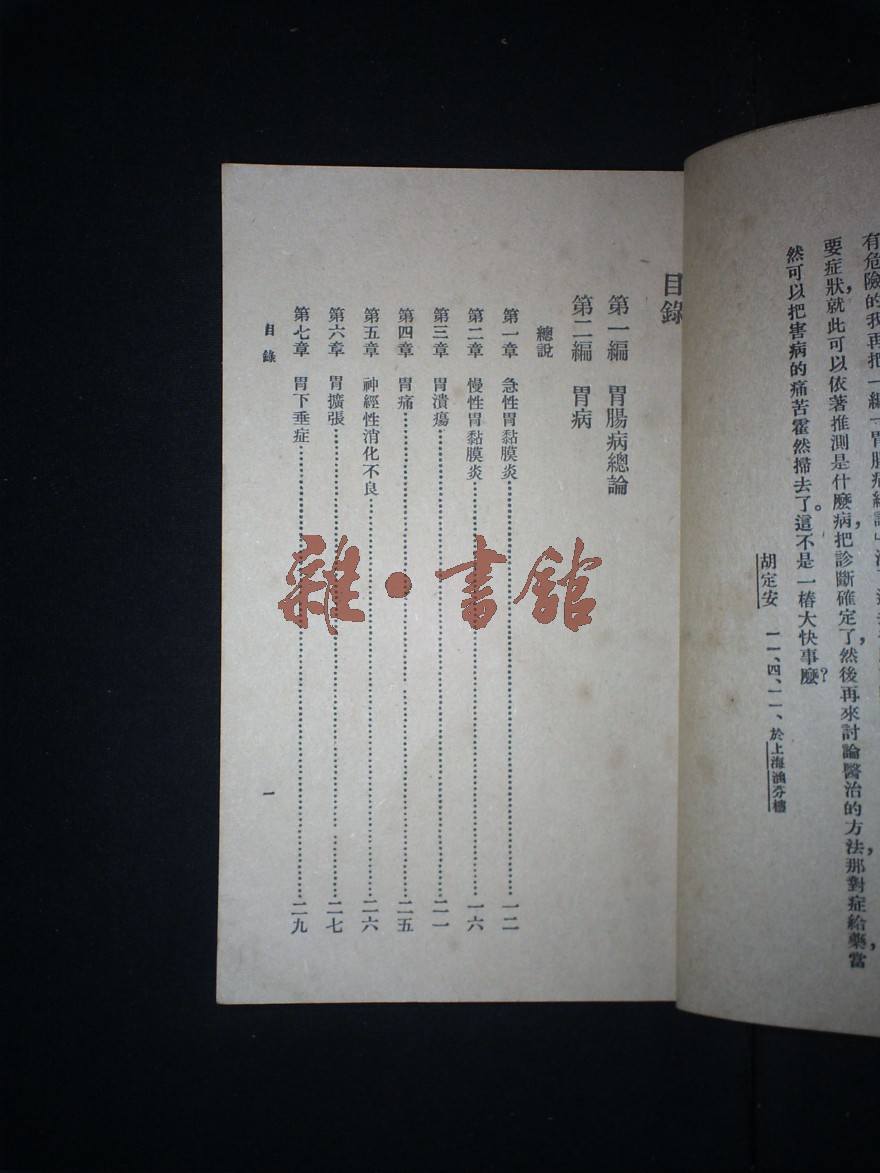 有危險的我再把一編「胃腸病總論」
要症狀，就此可以依著推測是什麼病，把診斷確定了，然後再來討論醫治的方法，那對症給藥，當
然可以把害病的痛苦霍然掃去了。這不是一樁大快事麼？
胡定安 一一、四、一一、於上海涵芬樓
目錄
第一編 胃腸病總論
第二編 胃病
總說
第一章 急性胃黏膜炎……一二
第二章 慢性胃黏膜炎……一六
第三章 胃潰瘍……二一
第四章 胃痛……二五
第五章 神經性消化不良……二六
第六章 胃擴張……二七
第七章 胃下垂症……二九
目錄
一
雜·書館